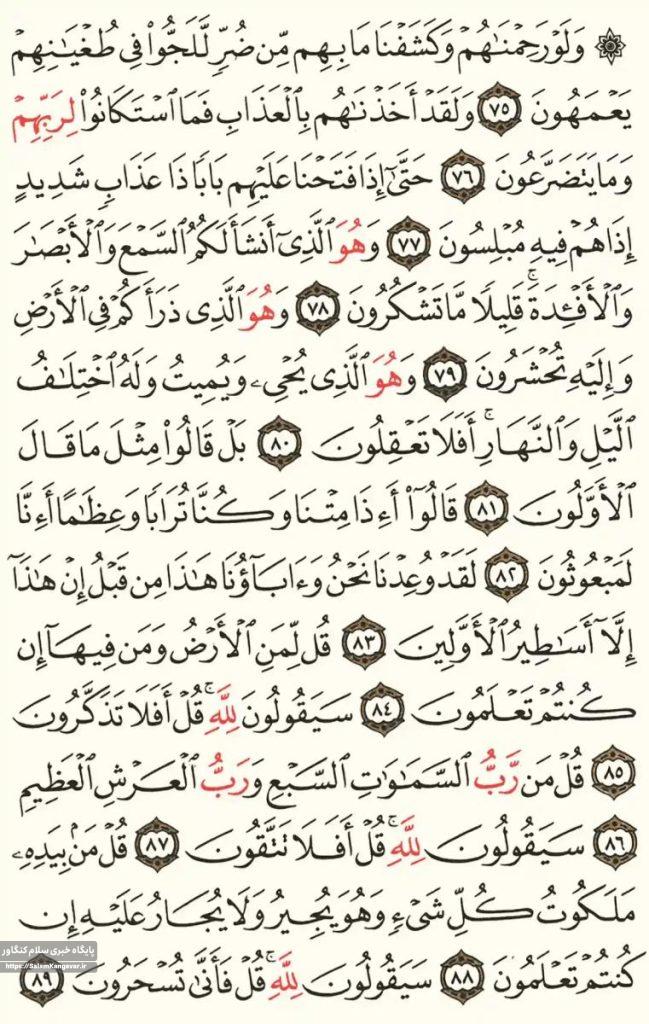 ۞ وَلَوْ رَحِمْنَٰهُمْ وَكَشَفْنَا مَا بِهِم مِّن ضُرٍّ لَّلَجُّوا۟ فِى طُغْيَٰنِهِمْ
يَعْمَهُونَ ٧٥ وَلَقَدْ أَخَذْنَٰهُم بِٱلْعَذَابِ فَمَا ٱسْتَكَانُوا۟ لِرَبِّهِمْ
وَمَا يَتَضَرَّعُونَ ٧٦ حَتَّىٰٓ إِذَا فَتَحْنَا عَلَيْهِم بَابًا ذَا عَذَابٍ شَدِيدٍ
إِذَا هُمْ فِيهِ مُبْلِسُونَ ٧٧ وَهُوَ ٱلَّذِىٓ أَنشَأَ لَكُمُ ٱلسَّمْعَ وَٱلْأَبْصَٰرَ
وَٱلْأَفْـِٔدَةَ ۚ قَلِيلًا مَّا تَشْكُرُونَ ٧٨ وَهُوَ ٱلَّذِى ذَرَأَكُمْ فِى ٱلْأَرْضِ
وَإِلَيْهِ تُحْشَرُونَ ٧٩ وَهُوَ ٱلَّذِى يُحْىِۦ وَيُمِيتُ وَلَهُ ٱخْتِلَٰفُ
ٱلَّيْلِ وَٱلنَّهَارِ ۚ أَفَلَا تَعْقِلُونَ ٨٠ بَلْ قَالُوا۟ مِثْلَ مَا قَالَ
ٱلْأَوَّلُونَ ٨١ قَالُوٓا۟ أَءِذَا مِتْنَا وَكُنَّا تُرَابًا وَعِظَٰمًا أَءِنَّا
لَمَبْعُوثُونَ ٨٢ لَقَدْ وُعِدْنَا نَحْنُ وَءَابَآؤُنَا هَٰذَا مِن قَبْلُ إِنْ هَٰذَآ
إِلَّآ أَسَٰطِيرُ ٱلْأَوَّلِينَ ٨٣ قُل لِّمَنِ ٱلْأَرْضُ وَمَن فِيهَآ إِن
كُنتُمْ تَعْلَمُونَ ٨٤ سَيَقُولُونَ لِلَّهِ ۚ قُلْ أَفَلَا تَذَكَّرُونَ
٨٥ قُلْ مَن رَّبُّ ٱلسَّمَٰوَٰتِ ٱلسَّبْعِ وَرَبُّ ٱلْعَرْشِ ٱلْعَظِيمِ
٨٦ سَيَقُولُونَ لِلَّهِ ۚ قُلْ أَفَلَا تَتَّقُونَ ٨٧ قُلْ مَنۢ بِيَدِهِۦ
مَلَكُوتُ كُلِّ شَىْءٍ وَهُوَ يُجِيرُ وَلَا يُجَارُ عَلَيْهِ إِن
كُنتُمْ تَعْلَمُونَ ٨٨ سَيَقُولُونَ لِلَّهِ ۚ قُلْ فَأَنَّىٰ تُسْحَرُونَ ٨٩
پایگاه خبری سلام کنگاور
https://SalamKangavar.ir